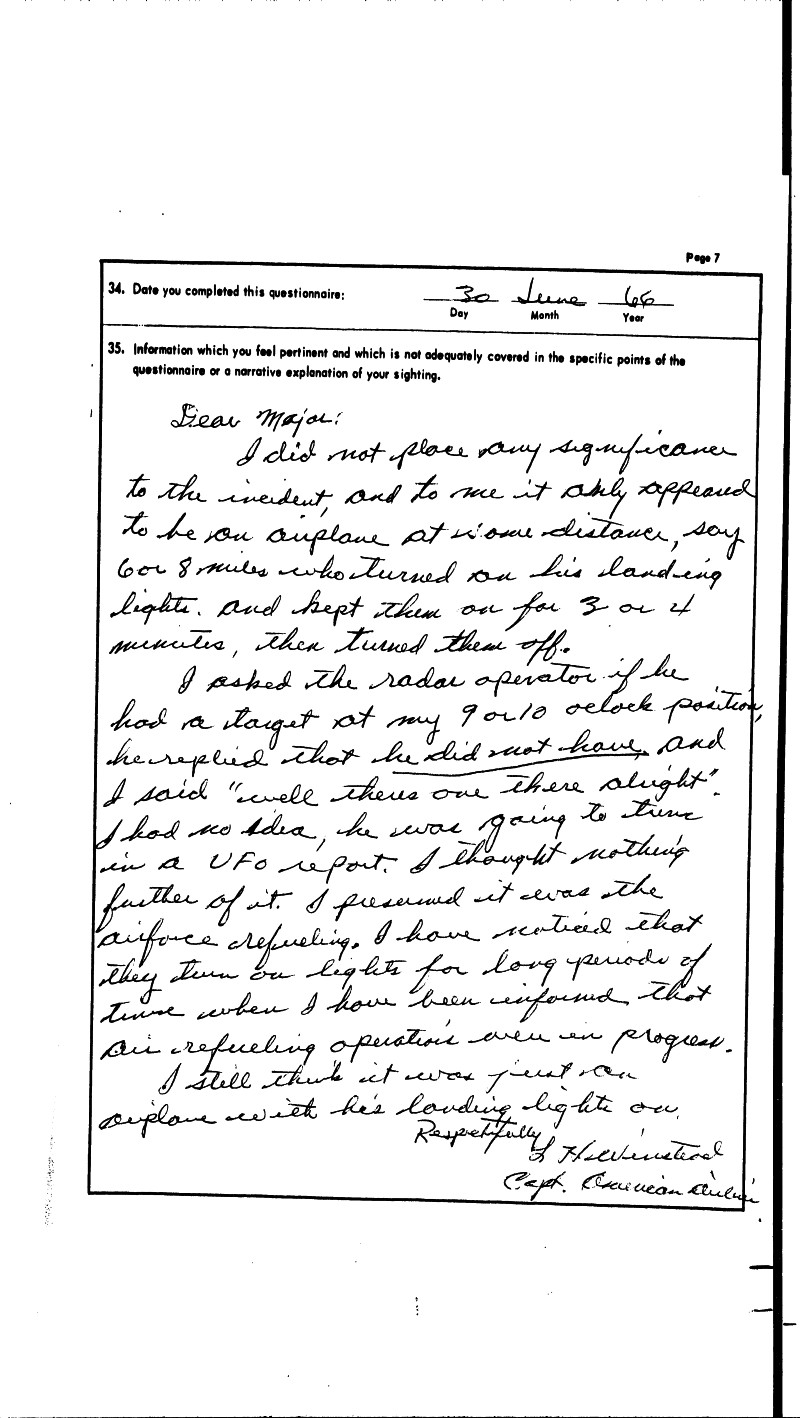 Page 7
34. Date you completed this questionnaire:
30 June 66
Day Month Year
35. Information which you feel pertinent and which is not adequately covered in the specific points of the
questionnaire or a narrative explanation of your sighting.
Dear Major:
I did not place any significance
to the incident, and to me it only appeared
to be an airplane at some distance, say
6 or 8 miles who turned on his landing
lights. and kept them on for 3 or 4
minutes, then turned them off.
I asked the radar operator if he
had a target at my 9 or 10 oclock position,
he replied that he did not have, and
I said "well theres one there alright".
I had no idea, he was going to turn
in a UFO report. I thought nothing
further of it. I presumed it was the
airforce refueling. I have noticed that
they turn on lights for long periods of
time when I have been informed that
air refueling operations were in progress.
I still think it was just an
airplane with his landing lights on.
Respectfully
L H Winstead
Capt. American Airlines